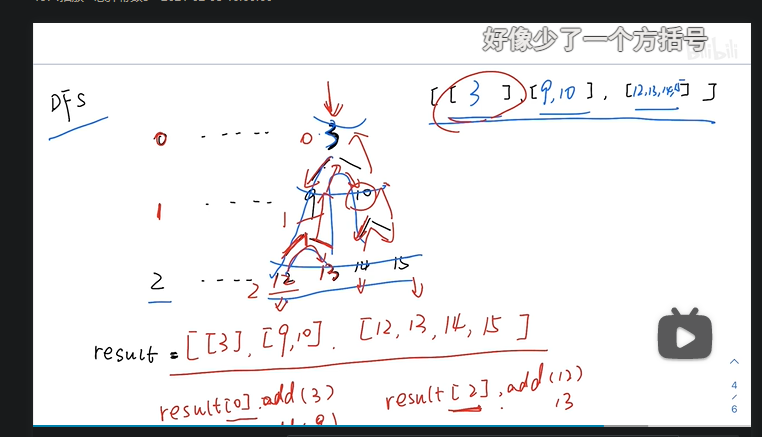 好像少了一个方括号
bilibili
DFS
[ [ 3 ], [9,10], [12,13,14,15] ]
0 ----- 0 3
1 ---- 9 10
1
2 ---- 2 12 13 14 15
result = [[3], [9,10], [12, 13, 14, 15 ]
result[0].add(3)
result[2].add(12)
13
4
/
6